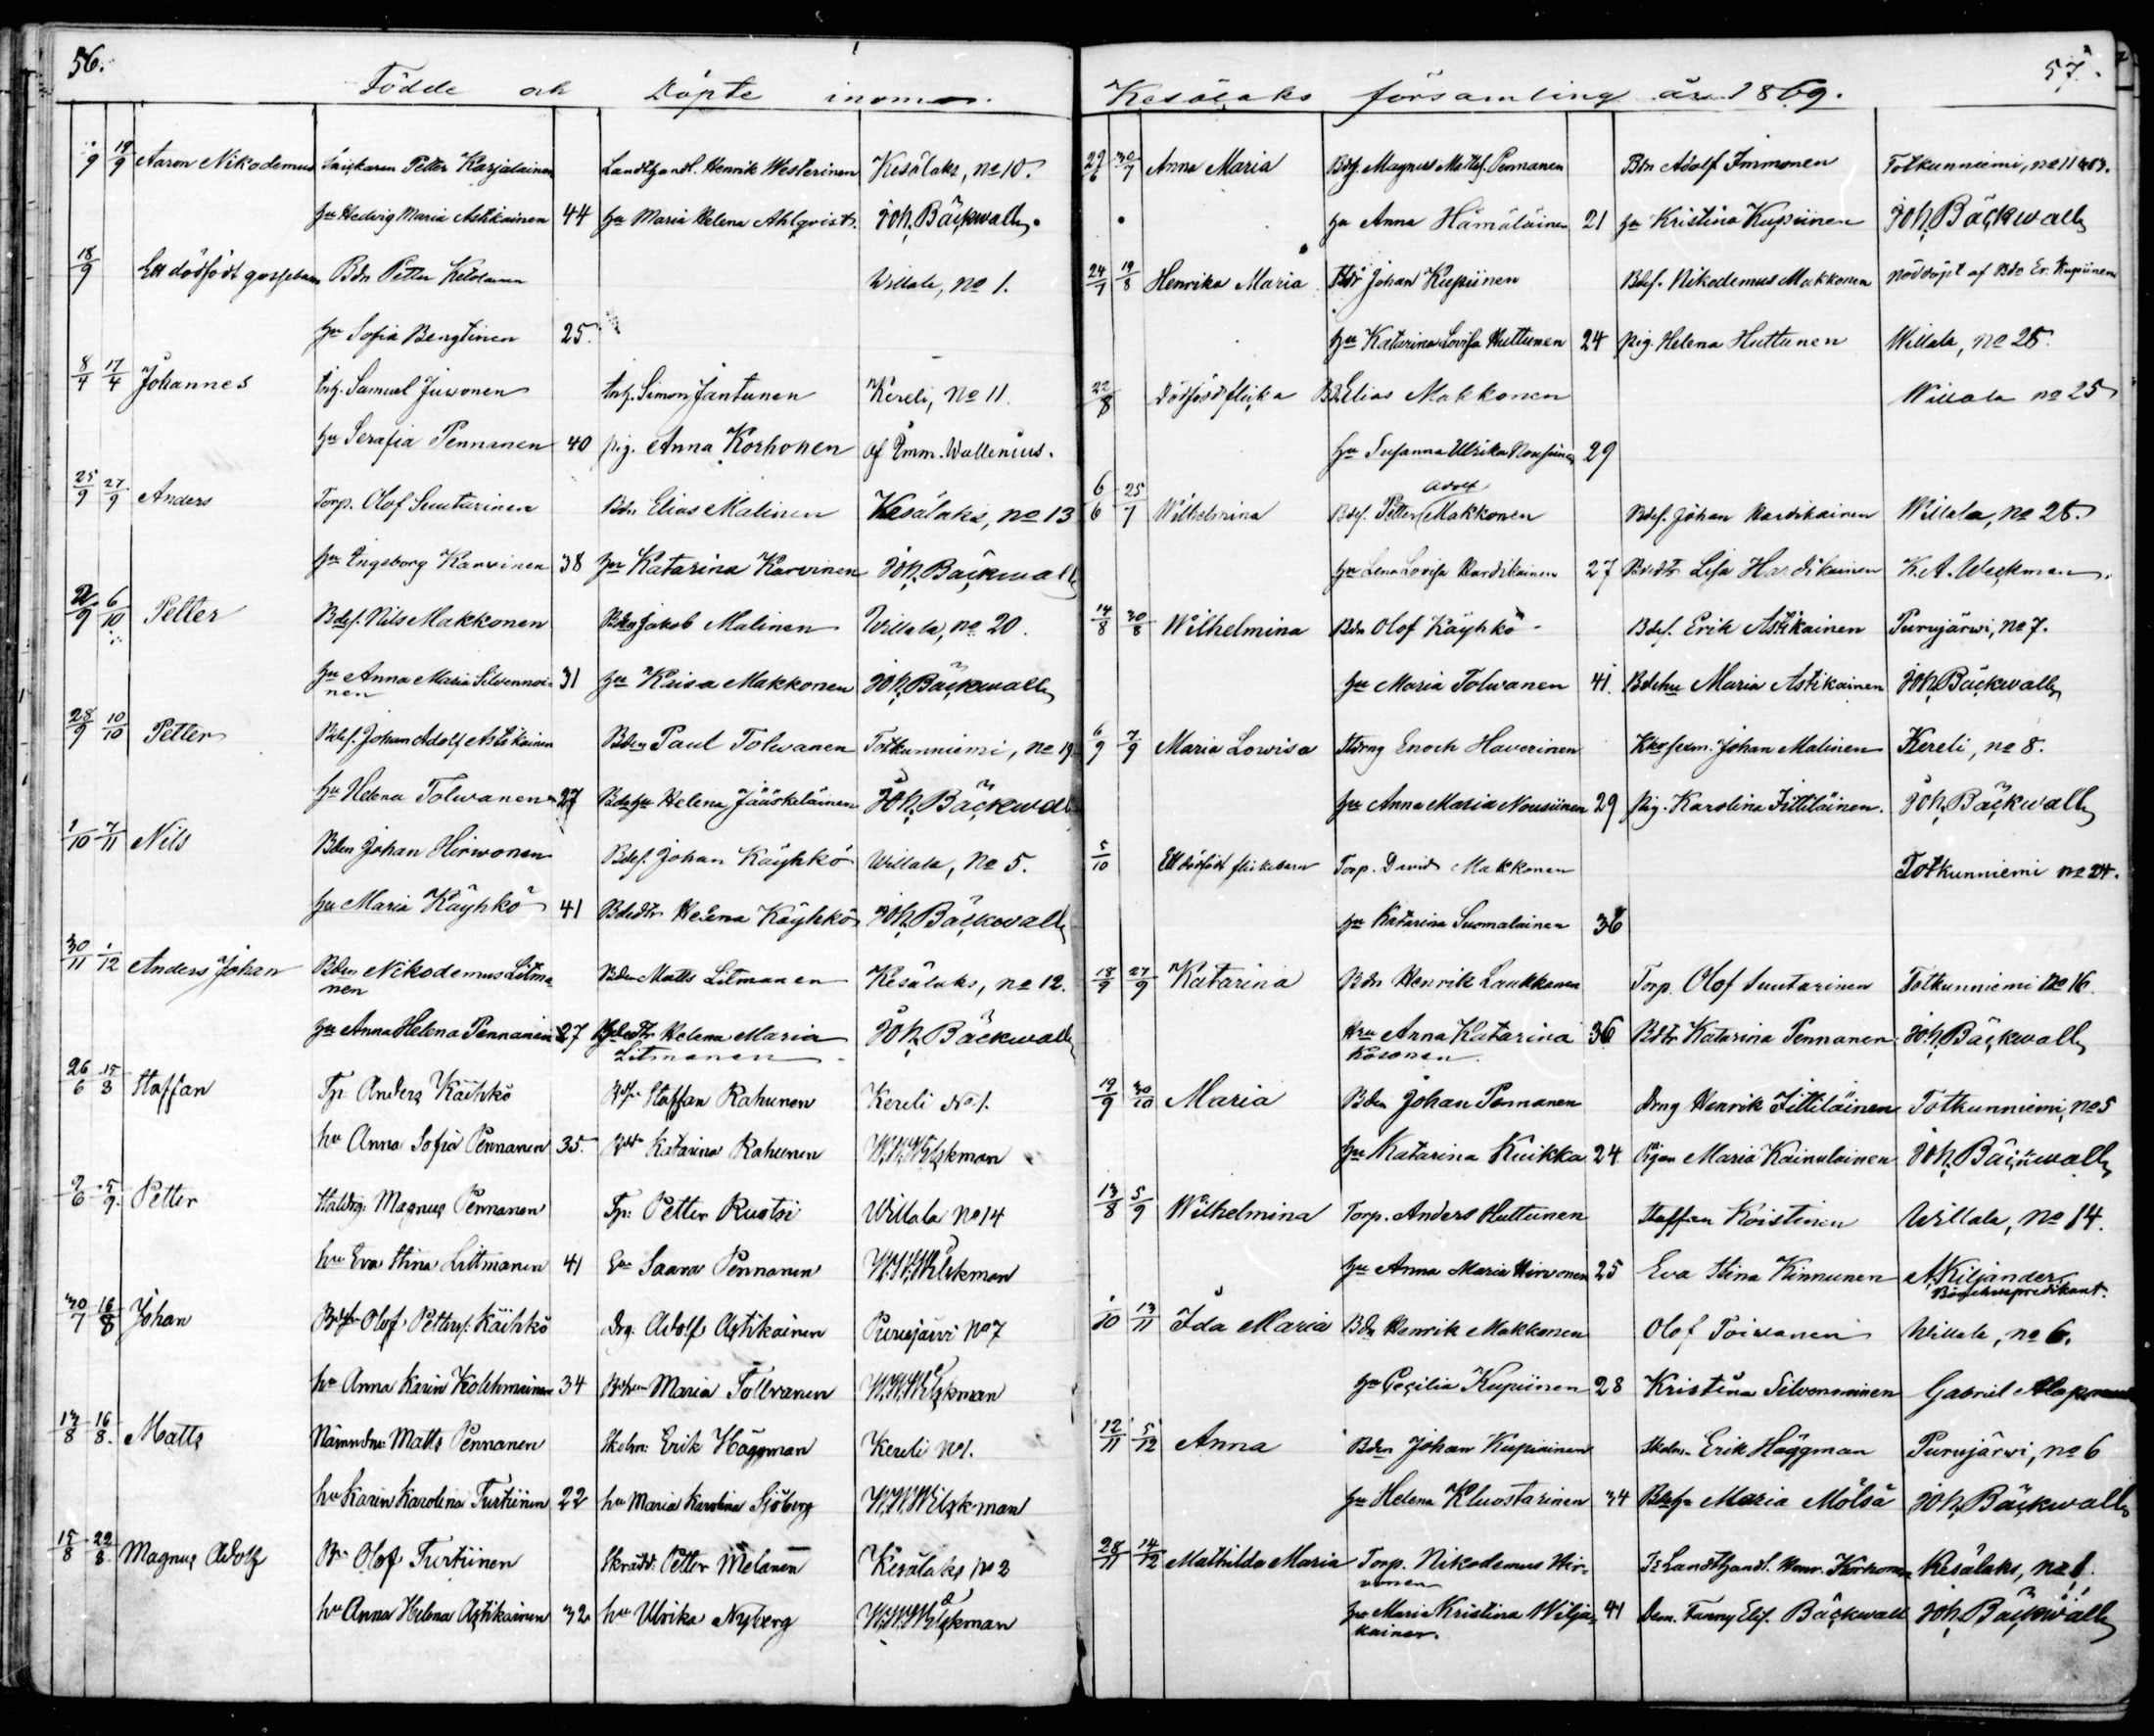 56.
Födde och Döpte inom
9 19/9 Aaron Nikodemus Petter Karjalainen Landthandl. Henrik Westerinen Kesälaks, no 10.
hu Hedvig Maria Astikainen 44 hu Maria Helena Ahlqvist Joh. Bäckwall
18/9 Ett dödfödt gossebarn Bdn Petter Ketolainen Willala, no 1.
hu Sofia Bengtinen 25.
8/4 17/4 Johannes Inh. Samuel Juvonen Inh. Simon Jantunen Kereli, No 11.
hu Serafia Pennanen 40 pig. Anna Korhonen af Imm. Wallenius.
25/9 27/9 Anders Torp. Olof Suutarinen Bdn Elias Malinen Kesälaks, no 13
hu Ingeborg Karvinen 38 hu Katarina Karvinen Joh. Bäckwall
2/9 6/10 Petter Bdes. Nils Makkonen Bden Jakob Malinen Willala, no 20.
hu Anna Maria Silvennoi- 31 hu Kaisa Makkonen Joh. Bäckwall
nen
28/9 10/10 Petter Bdes. Johan Adolf Astikainen Bden Paul Tolvanen Totkunniemi, no 19
hu Helena Tolvanen 27 Bdehu Helena Jääskeläinen Joh. Bäckwall
1/10 7/11 Nils Bden Johan Hirvonen Bdes. Johan Käyhkö Willala, No 5.
hu Maria Käyhkö 41 Bdedtr Helena Käyhkö Joh. Bäckwall
30/11 1/12 Anders Johan Bden Nikodemus Litma- Bden Matts Litmanen Kesälaks, no 12.
nen
hu Anna Helena Pennanen 27 Bdedtr Helena Maria Joh. Bäckwall
Litmanen
26/6 15/8 Staffan Tp. Anders Käihkö Staffan Rahunen Kereli No 1.
hu Anna Sofia Pennanen 35. Katarina Rahunen W.W. Wilskman
2/6 5/9. Petter Staldrg: Magnus Pennanen Tp: Petter Ruotsi Willala No 14
hu Eva Stina Littmanen 41 Saara Pennanen W.W. Wilskman
30/7 16/8 Johan Olof Petters: Käihkö Drg. Adolf Astikainen Purujärvi No 7
hu Anna Karin Kolehmainen 34 Maria Tollvanen W.W. Wilskman
13/8 16/8. Matts Nämndm: Matts Pennanen Skolm: Erik Häggman Kereli No 1.
hu Karin Karolina Turtinen 22 hu Maria Karolina Sjöberg W.W. Wilskman
15/8 22/8. Magnus Adolf Olof Turtiinen Skrädd: Petter Melanen Kesälaks No 2
hu Anna Helena Astikainen 32 hu Ulrika Nyberg W.W. Wilskman
57.
Kesälaks församling år 1869.
27/6 30/7 Anna Maria Bdes. Magnus Mattss. Pennanen Bdn Adolf Immonen Totkunniemi, no 11
hu Anna Hämäläinen 21 hu Kristina Kupiinen Joh. Bäckwall
24/7 19/8 Henrika Maria Bdn Johan Kupiinen Bdes. Nikodemus Makkonen nöddöpt af Bdn Er. Kupiinen
hu Katarina Lovisa Huttunen 24 pig. Helena Huttunen Willala, no 28.
22/8 Dödfödd flicka Bd. Elias Makkonen Willala no 25
hu Susanna Ulrika Nousiainen 29
Adolf
6/6 25/7 Wilhelmina Bdes. Petter Makkonen Bdes. Johan Hardikainen Willala, no 28.
hu Lena Lovisa Hardikainen 27 Bdedtr Lisa Hardikainen K.A. Weckman
14/8 30/8 Wilhelmina Bdn Olof Käyhkö Bdes. Erik Astikainen Purujärwi, no 7.
hu Maria Tolvanen 41. Bdehu Maria Astikainen Joh. Bäckwall
6/9 7/9 Maria Lowisa Enoch Haverinen Johan Malinen Kereli, no 8.
hu Anna Maria Nousiinen 29 pig. Karolina Tittiläinen. Joh. Bäckwall
5/10 Ett dödfödt flickebarn Torp. David Makkonen Totkunniemi no 24.
hu Katarina Suomalainen 36
18/9 27/9 Katarina Bdn Henrik Laukkanen Torp. Olof Suutarinen Totkunniemi No 16.
Hru Anna Katarina 36 Bdtr Katarina Pennanen Joh. Bäckwall
Kosonen.
19/9 30/10 Maria Bden Johan Pennanen Drng Henrik Tittiläinen Totkunniemi, no 5
hu Katarina Kuikka 24 Pigan Maria Kainulainen Joh. Bäckwall
13/8 5/9 Wilhelmina Torp. Anders Huttunen Staffan Koistinen Willala, No 14.
hu Anna Maria Hirvonen 25 Eva Stina Kinnunen A. Kiljander
Bönehuspredikant.
1/10 13/11 Ida Maria Bdn Henrik Makkonen Olof Toivanen Willala, no 6.
hu Cecilia Kupiinen 28 Kristina Silvenninen Gabriel
12/11 5/12 Anna Bden Johan Kupiainen Skolm. Erik Häggman Purujärwi, no 6
hu Helena Kluostarinen 34 Bdehu Maria Mölsä Joh. Bäckwall
28/11 14/12 Mathilda Maria Torp. Nikodemus Hir- Landthandl. Henr. Korhonen Kesälaks, no 1.
vonen
hu Maria Kristina Wilja- 41 Dem. Fanny Elis. Bäckwall Joh. Bäckwall
kainen.